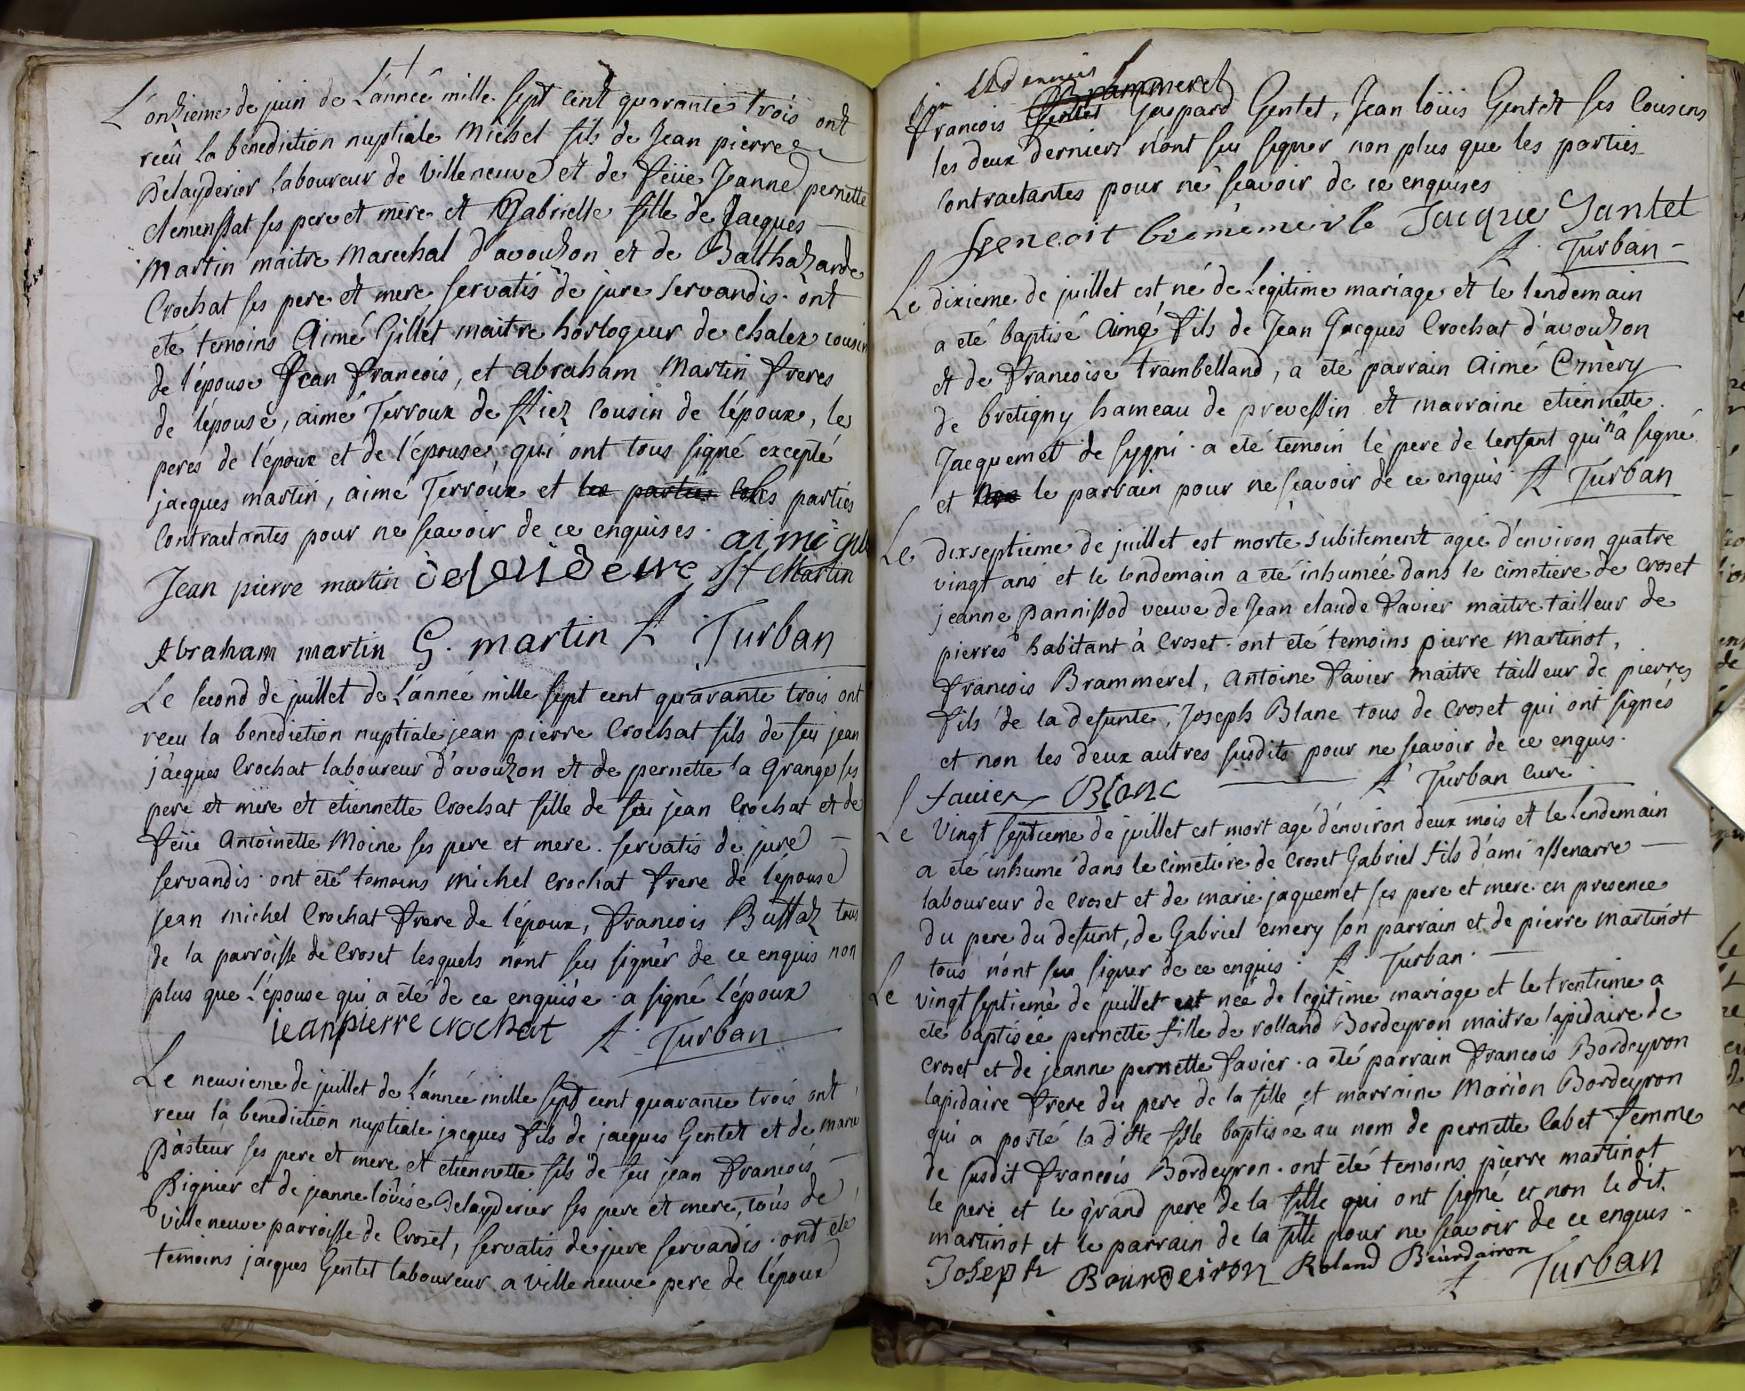 L'onzieme de juin de L'année mille sept cent quarante trois ont
reçû la benediction nuptiale Michel fils de Jean pierre
Delayderier laboureur de Villeneuve et de feüe Jeanne pernette
clemenssat ses pere et mere et Gabrielle fille de Jacques
Martin maitre Marechal d'avouzon et de Balthazarde
Crochat ses pere et mere servatis de jure servandis. ont
eté temoins Aimé Gillet maitre horlogeur de chalex cousin
de l'épouse Jean francois, et abraham Martin freres
de l'épouse, aimé Terroux de fliez cousin de l'époux, les
peres de l'époux et de l'épouse, qui ont tous signé excepté
jacques martin, aimé Terroux et les parties
Contractantes pour ne sçavoir de ce enquises. aimé
Jean pierre martin Martin
Abraham martin G. martin A Turban
Le second de juillet de L'année mille sept cent quarante trois ont
recu la benediction nuptiale jean pierre Crochat fils de feu jean
jacques Crochat laboureur d'avouzon et de pernette la Grange ses
pere et mere et etiennette Crochat fille de feu jean Crochat et de
feüe Antoinette Moine ses pere et mere. servatis de jure
servandis. ont eté temoins Michel Crochat frere de l'épouse
Jean Michel Crochat frere de l'époux, francois Buffaz tous
de la parroisse de Croset lesquels n'ont sçu signer de ce enquis non
plus que l'épouse qui a eté de ce enquise. a signé l'époux
jeanpierre crochat A. Turban
Le neuvieme de juillet de L'année mille sept cent quarante trois ont
recu la benediction nuptiale jacques fils de jacques Gentet et de marie
Pasteur ses pere et mere et etiennette fils de feu jean francois
Bignier et de jeanne loüise Delayderier ses pere et mere, tous de
Villeneuve parroisse de Croset, servatis de jure servandis. ont eté
temoins jacques Gentet laboureur a Villeneuve pere de l'époux
Brammerel
francois Gentet Gaspard Gentet, Jean loüis Gentet ses Cousins
les deux derniers n'ont sçu signer non plus que les parties
Contractantes pour ne sçavoir de ce enquises
Jacque Jantet
A Turban
Le dixieme de juillet est né de Legitime mariage et le lendemain
a eté baptisé Aimé fils de Jean Jacques Crochat d'avouzon
et de francoise Trambelland, a eté parrain Aimé Emèry
de bretigny hameau de prevessin et marraine etiennette
Jacquemet de sygni. a eté temoin le pere de l'enfant qui n'a signé
et le parrain pour ne sçavoir de ce enquis A Turban
Le dixseptieme de juillet est morte subitement agée d'environ quatre
vingt ans et le lendemain a eté inhumée dans le cimetiere de Croset
jeanne pannissod veuve de Jean claude favier maitre tailleur de
pierres habitant à Croset. ont eté temoins pierre Martinot,
francois Brammerel, antoine favier maitre tailleur de pierres
fils de la defunte, Joseph Blanc tous de Croset qui ont signés
et non les deux autres susdits pour ne sçavoir de ce enquis.
favier Blanc A Turban Curé
Le Vingt septieme de juillet est mort agé d'environ deux mois et le lendemain
a eté inhumé dans le cimetiere de Croset Gabriel fils d'ami assenarre
laboureur de Croset et de marie jaquemet ses pere et mere en presence
du pere du defunt, de Gabriel emery son parrain et de pierre Martinot
tous n'ont sçu signer de ce enquis. A Turban.
Le vingt septiemé de juillet est née de legitime mariage et le trentieme a
eté baptisée pernette fille de rolland Bordeyron maitre lapidaire de
Croset et de jeanne pernette favier. a eté parrain francois Bordeyron
lapidaire frere du pere de la fille et marraine Marion Bordeyron
qui a porté la ditte fille baptisée au nom de pernette Cabet femme
de susdit francois Bordeyron. ont eté temoins pierre martinot
le pere et le grand pere de la fille qui ont signé et non le dit
martinot et le parrain de la fille pour ne sçavoir de ce enquis.
Joseph Bourdeiron Roland Beurdairon
A Turban